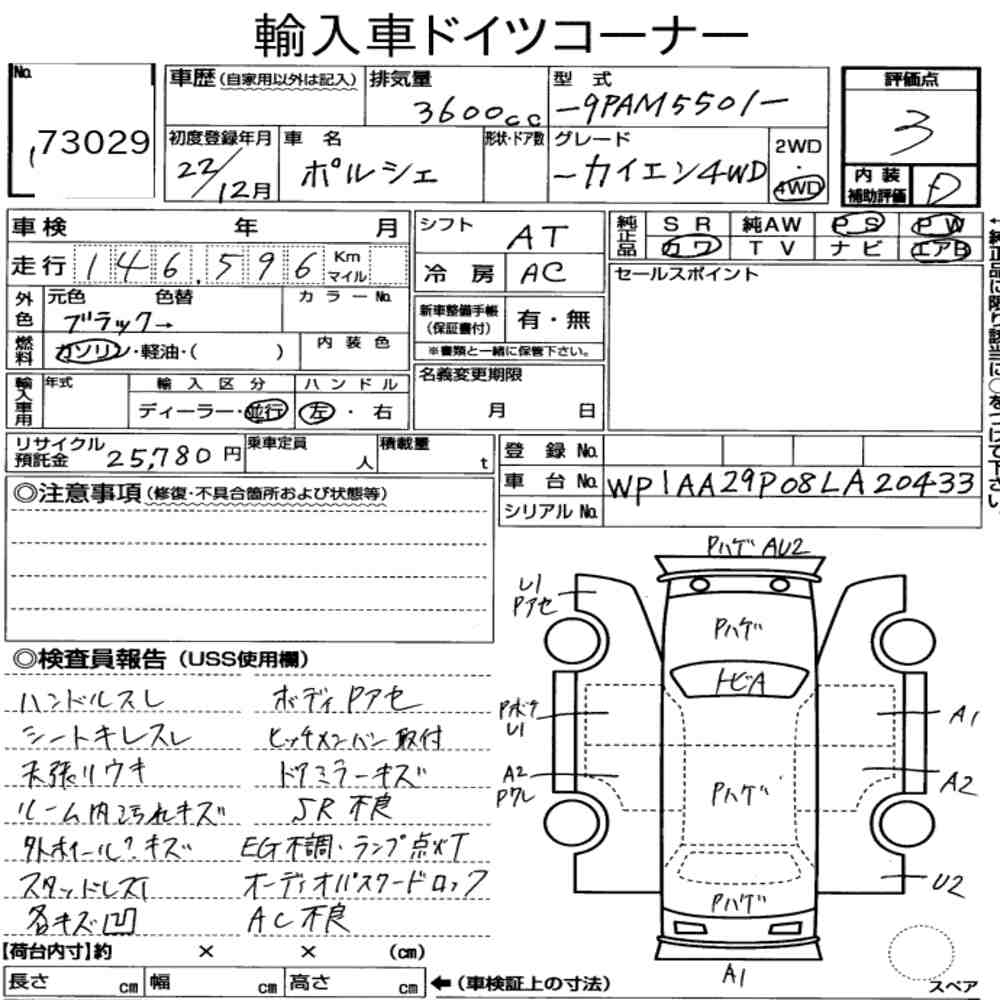 輸入車ドイツコーナー
No. 73029
車歴(自家用以外は記入)
排気量 3600cc
型式 -9PAM5501-
評価点 3
内装補助評価 D
初度登録年月 22/12月
車名 ポルシェ
形状・ドア数
グレード -カイエン4WD
2WD・4WD
車検 年 月
走行 146,596 Km マイル
シフト AT
冷房 AC
純正品 SR 純AW PS PW
カワ TV ナビ エアB
セールスポイント
←純正品に限り該当に○をつけて下さい。
外色 元色 色替 カラーNo.
ブラック→
燃料 ガソリン・軽油・( )
内装色
新車整備手帳(保証書付) 有・無
※書類と一緒に保管下さい。
輸入車用 年式 輸入区分 ハンドル
ディーラー・並行 左・右
名義変更期限
月 日
リサイクル預託金 25,780円
乗車定員 人
積載量 t
登録No.
車台No. WP1AA29P08LA20433
シリアルNo.
◎注意事項(修復・不具合箇所および状態等)
◎検査員報告(USS使用欄)
ハンドルスレ ボディPアセ
シートキレスレ ヒッチメンバー取付
天張リウキ ドアミラーキズ
ルーム内汚れキズ SR不良
外ホイールキズ EG不調・ランプ点灯
スタッドレス オーディオパスワードロック
各キズ凹 AC不良
PハゲAU2
U1
Pアセ
Pハゲ
トビA
Pボケ
U1
A1
A2
Pワレ
Pハゲ
A2
U2
Pハゲ
A1
スペア
【荷台内寸】約 × × (cm)
長さ cm 幅 cm 高さ cm ←(車検証上の寸法)